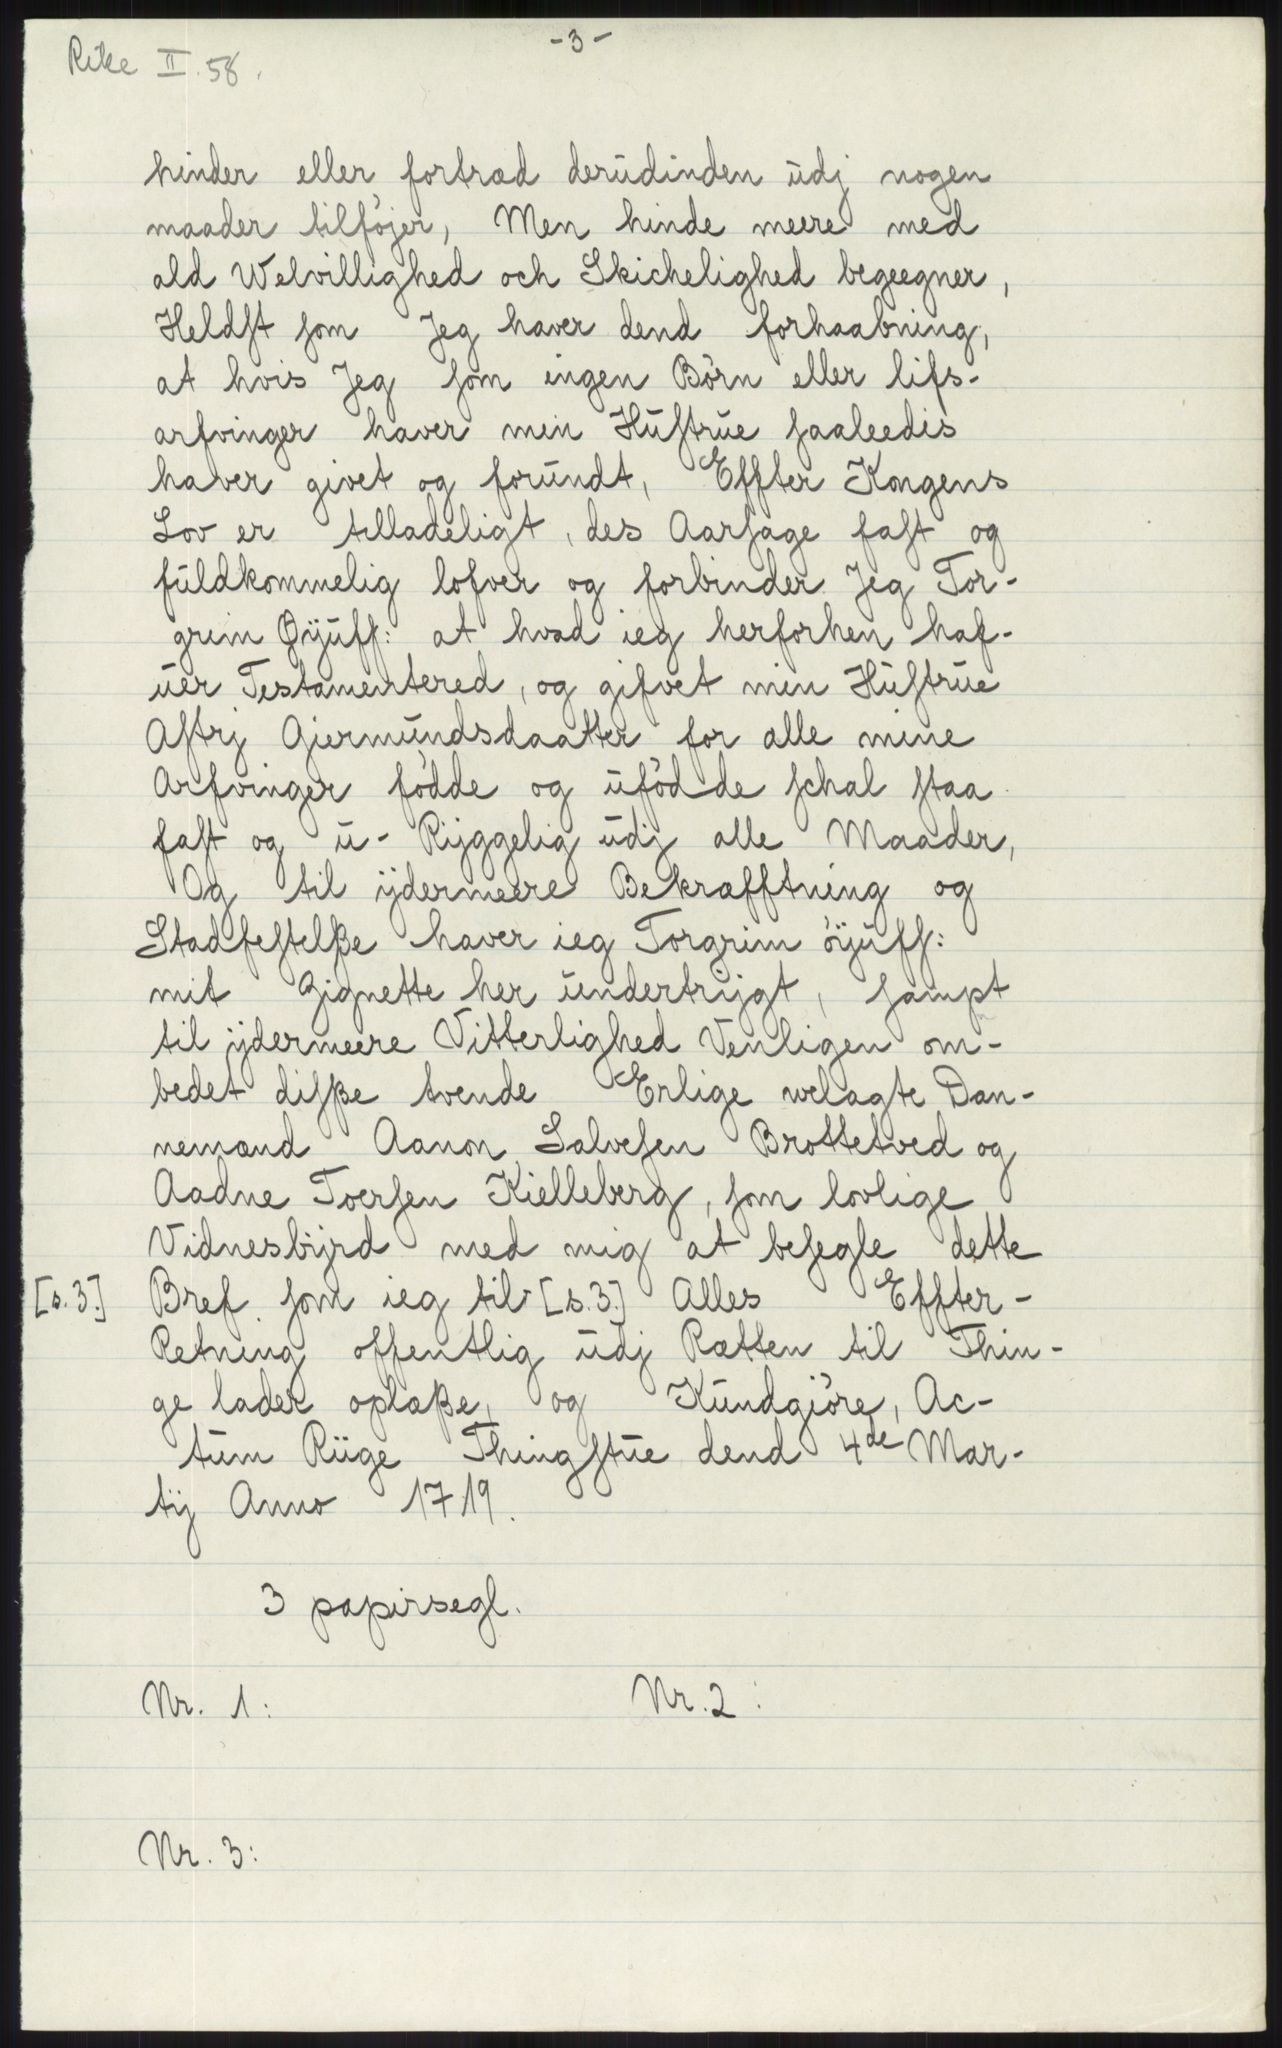 Rike II. 58.
-3-
hinder eller fortræd derudinden udj nogen
maader tilføjer, Men hinde meere med
ald Welvillighed och Skichelighed begeegner,
Heldst som Jeg haver dend forhaabning,
at hvis Jeg som ingen Børn eller lifs-
arfvinger haver min Hustrue saaleedis
haver givet og forundt, Effter Kongens
Lov er tilladeligt, des Aarsage fast og
fuldkommelig lofver og forbinder Jeg Tor-
grim Øÿufs: at hvad ieg herforhen haf-
uer Testamentered, og gifvet min Hustrue
Astrj Giermundsdaatter for alle mine
Arfvinger fødde og ufødde schal staa
fast og u-Rijggelig udj alle Maader,
Og til ÿdermeere Bekræfftning og
Stadfestelße haver ieg Torgrim øÿufs:
mit Zignette her undertrijgt, sampt
til ÿdermeere Vitterlighed Venligen om-
bedet disße tvende Erlige welagte Dan-
nemænd Aanon Salvesen Brottetved og
Aadne Toersen Kielleberg, som lovlige
Vidnesbijrd med mig at besegle dette
[s.3.] Bref som ieg til [s.3.] Alles Effter-
Retning offentlig udj Rætten til Thin-
ge lader oplæße, og Kundgiøre, Ac-
tum Riige Thingstue dend 4de Mar-
tij Anno 1719.
3 papirsegl.
Nr. 1: Nr. 2:
Nr. 3: